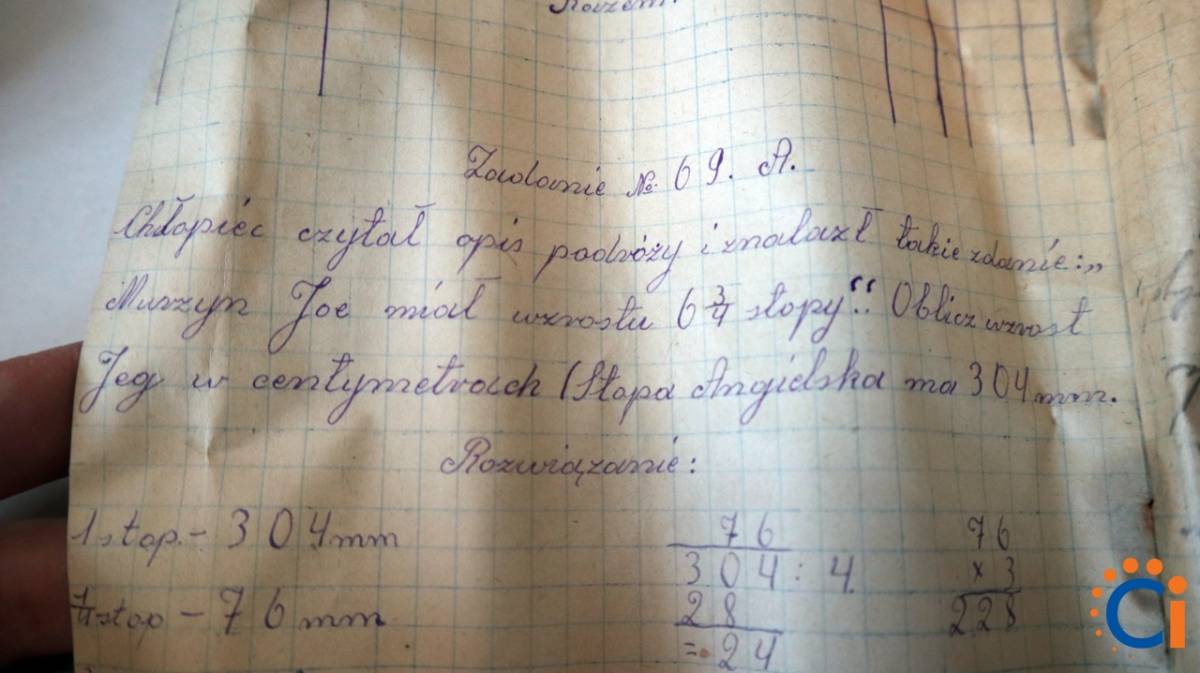 Zadanie № 69. A.
Chłopiec czytał opis podróży i znalazł takie zdanie: „
Murzyn Joe miał wzrostu 6 3/4 stopy". Oblicz wzrost
Jeg w centymetrach (Stopa Angielska ma 304 mm.
Rozwiązanie:
1 stop. - 304 mm
76
304 : 4.
28
= 24
76
x 3
228
1/4 stop - 76 mm
Ci